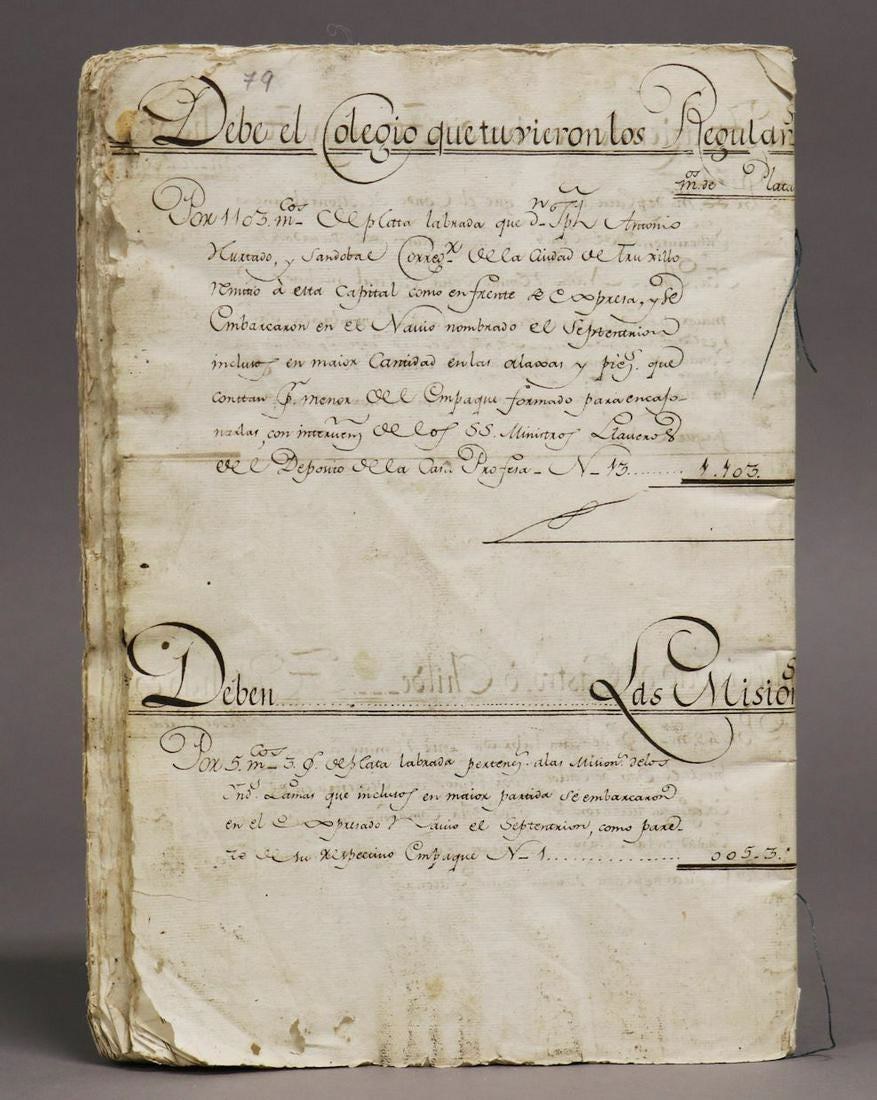 79
Debe el Colegio que tuvieron los Regular.s
m.os de Plata
Por 1103. m.cos de platta labrada que d.n Jph Antonio
Hurtado, y Sandobal Correg.r de la Ciudad de Truxillo
rimitio â esta Capital como enfrente se Expresa, y se
Embarcaron en el Navio nombrado el Septentrion
inclusos en maior Cantidad en las alaxas y piez.s que
constan p.r menor del Empaque formado para encajo-
narlas, con interven.n de los SS. Ministros Llaveros
del Deposito de la Cas.a Profesa - N - 13........ 1.103.
Deben Las Mision.s
Por 5. m.cos 3. de plata labrada perten.s a las Mision.s de los
Ynd.s Lamas que inclusos en maior partida se embarcaron
en el Expresado Navio el Septentrion, como pare-
ze de su respectivo Empaque N - 1................ 005-3.